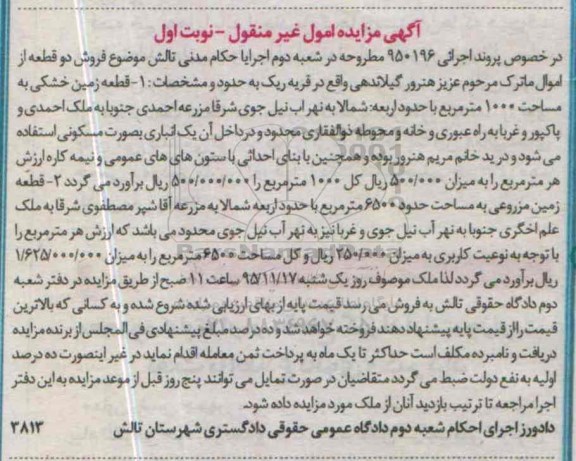 آگهی مزایده اموال غیر منقول - نوبت اول
در خصوص پروند اجرائی ۹۵۰۱۹۶ مطروحه در شعبه دوم اجرایا حکام مدنی تالش موضوع فروش دو قطعه از
اموال ماترک مرحوم عزیز هنرور گیلاندهی واقع در قریه ریک به حدود و مشخصات : ۱- قطعه زمین خشکی به
مساحت ۱۰۰۰ مترمربع با حدود اربعه: شمالا به نهر اب نیل جوی شرقا مزرعه احمدی جنوبا به ملک احمدی و
پاکپور و غربا به راه عبوری و خانه و محوطه ذوالفقاری محدود و در داخل آن یک انباری بصورت مسکونی استفاده
می شود و در ید خانم مریم هنرور بوده و همچنین با بنای احداثی با ستون های های عمومی و نیمه کاره ارزش
هر مترمربع را به میزان ۵۰۰/۰۰۰ ریال کل ۱۰۰۰ مترمربع را ۵۰۰/۰۰۰/۰۰۰ ریال برآورد می گردد ۲- قطعه
زمین مزروعی به مساحت حدود ۶۵۰۰ مترمربع با حدود اربعه شمالا به مزرعه آقا شپر مصطفوی شرقا به ملک
علم اخگری جنوبا به نهر آب نیل جوی و غربا نیز به نهر آب نیل جوی محدود می باشد که ارزش هر مترمربع را
با توجه به نوعیت کاربری به میزان ۲۵۰/۰۰۰ ریال و کل مساحت ۶۵۰۰ مترمربع را به میزان ۱/۶۲۵/۰۰۰/۰۰۰
ریال برآورد می گردد لذا ملک موصوف روز یک شنبه ۹۵/۱۱/۱۷ ساعت ۱۱ صبح از طریق مزایده در دفتر شعبه
دوم دادگاه حقوقی تالش به فروش می رسد قیمت پایه از بهای ارزیابی شده شروع شده و به کسانی که بالاترین
قیمت رااز قیمت پایه پیشنهاد دهند فروخته خواهد شد و ده درصد مبلغ پیشنهادی فی المجلس از برنده مزایده
دریافت و نامبرده مکلف است حداکثر تا یک ماه به پرداخت ثمن معامله اقدام نماید در غیر اینصورت ده درصد
اولیه به نفع دولت ضبط می گردد متقاضیان در صورت تمایل می توانند پنج روز قبل از موعد مزایده به این دفتر
اجرا مراجعه تا ترتیب بازدید آنان از ملک مورد مزایده داده شود.
دادورز اجرای احکام شعبه دوم دادگاه عمومی حقوقی دادگستری شهرستان تالش ۳۸۱۳